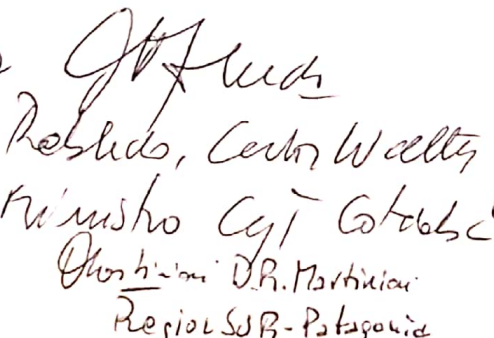 Robledo, Carlos Walter
Ministro CyT Córdoba
D.R. Martinioni
Region SUR-Patagonia